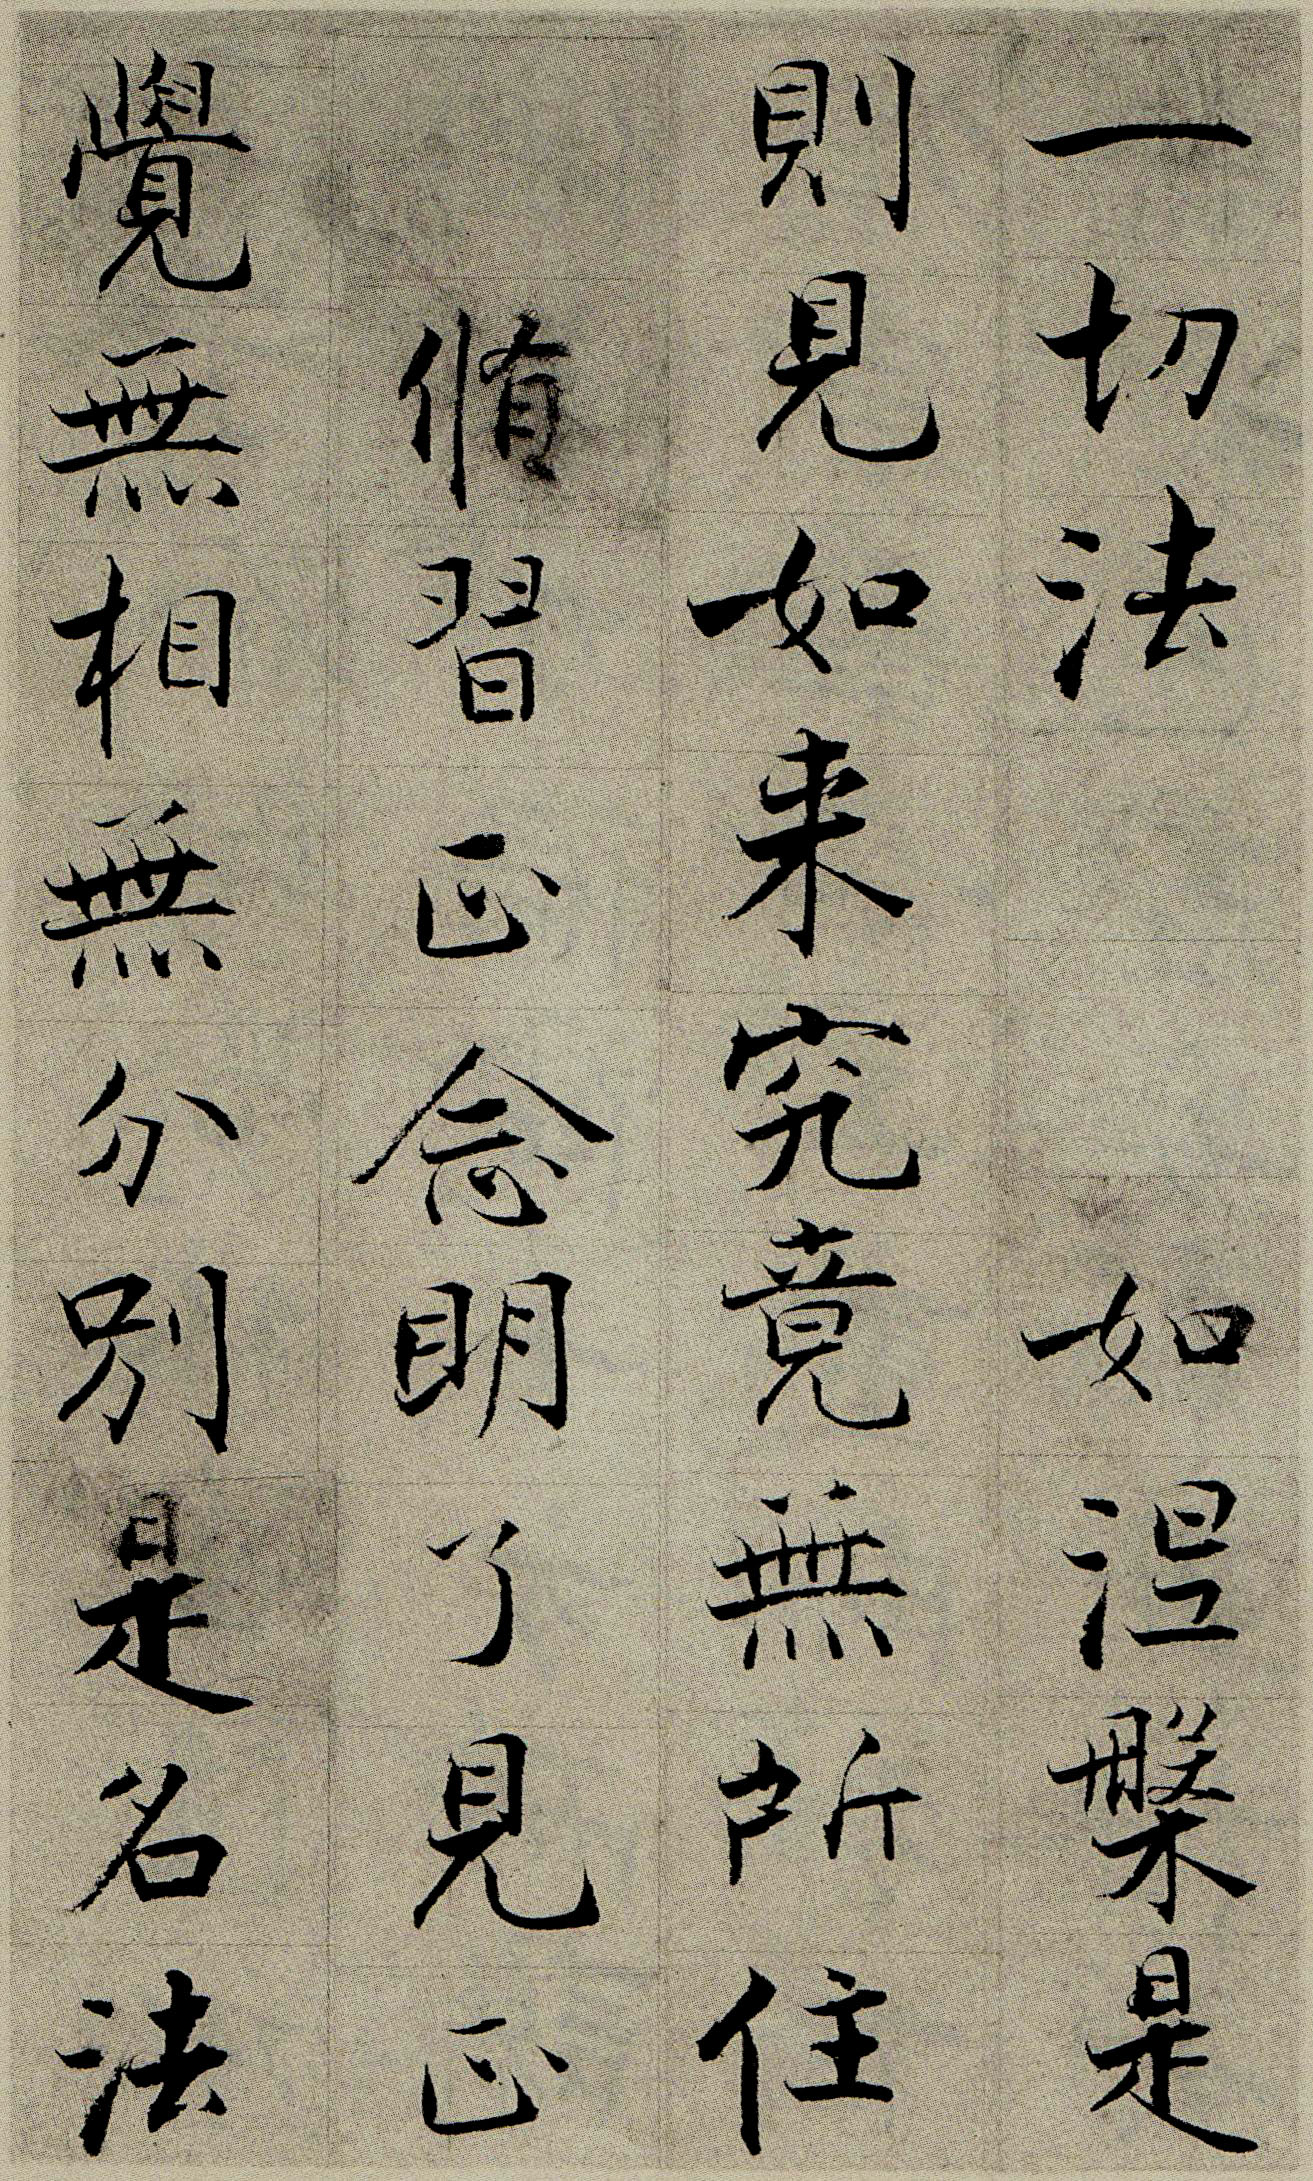 一切法　　如涅槃是
則見如来究竟無所住
脩習正念明了見正
覺無相無分別是名法